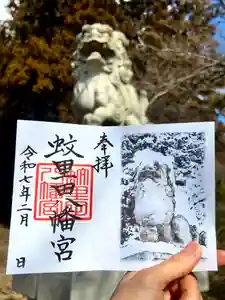 奉拝
蚊里田八幡宮
令和七年二月
日